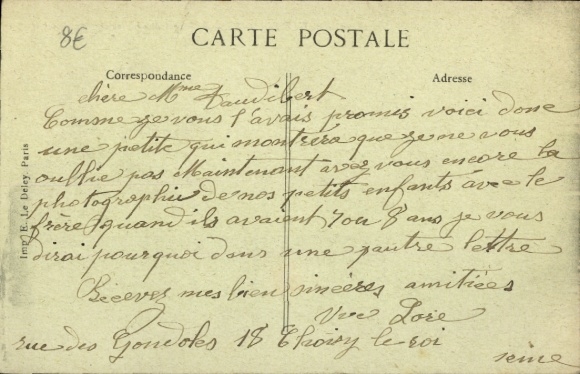 8€
CARTE POSTALE
Correspondance
Adresse
chère Mme Daudibert
Comme je vous l'avais promis voici donc
une petite qui montrera que je ne vous
oullie pas Maintenant avez vous encore la
photographie de nos petits enfants avec le
frère quand ils avaient 7 ou 8 ans je vous
dirai pourquoi dans une autre lettre
Recevez mes bien sincères amitiées
Vve Dore
rue des Gondoles 18 Choisy le-roi
seine
Imp. E. Le Deley Paris